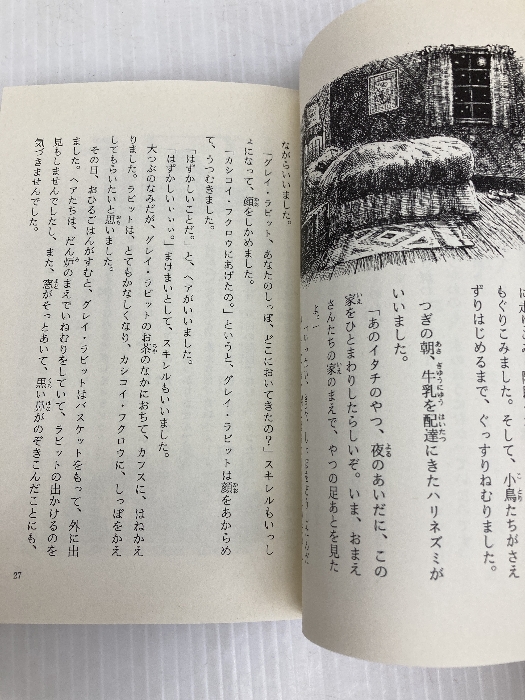 もぐりこみました。そして、小鳥たちがさえ
ずりはじめるまで、ぐっすりねむりました。
つぎの朝、牛乳を配達にきたハリネズミが
いいました。
「あのイタチのやつ、夜のあいだに、この
家をひとまわりしたらしいぞ。いま、おまえ
さんたちの家のまえで、やつの足あとを見た
よ。」
ながらいいました。
「グレイ・ラビット、あなたのしっぽ、どこにおいてきたの？」スキレルもいっし
ょになって、顔をしかめました。
「カシコイ・フクロウにあげたの。」というと、グレイ・ラビットは顔をあからめ
て、うつむきました。
「はずかしいことだ。」と、ヘアがいいました。
「はずかしいいいい。」まけまいとして、スキレルもいいました。
大つぶのなみだが、グレイ・ラビットのお茶のなかにおちて、カフスに、はねかえ
りました。ラビットは、とてもかなしくなり、カシコイ・フクロウに、しっぽをかえ
してもらいたいと思いました。
その日、おひるごはんがすむと、グレイ・ラビットはバスケットをもって、外に出
ました。ヘアたちは、だん炉のまえでいねむりをしていて、ラビットの出かけるのを
見もしませんでしたし、また、窓がそっとあいて、黒い鼻がのぞきこんだことにも、
気づきませんでした。
27